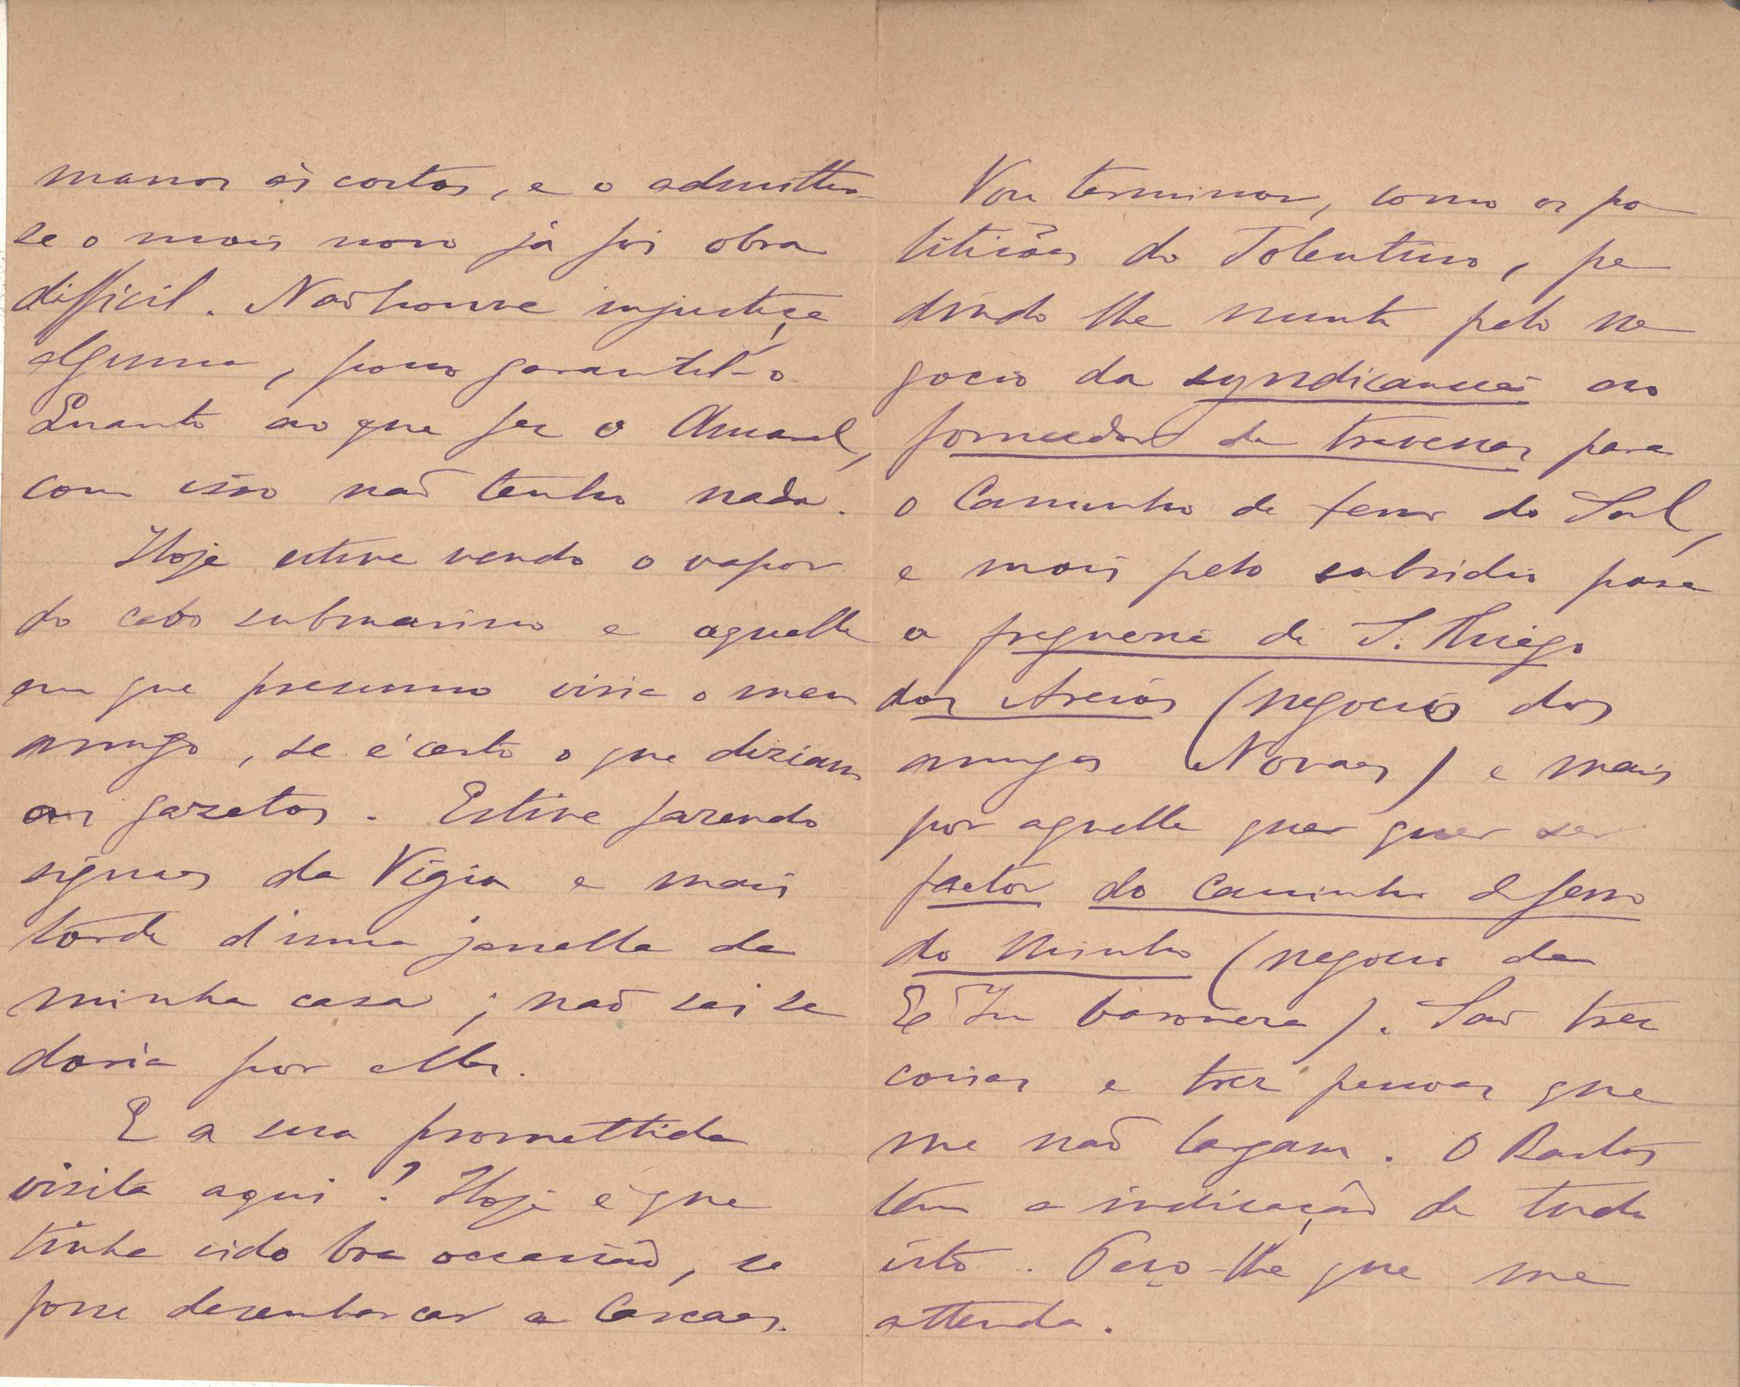 manos ás costas, e o admittir
se o mais novo já foi obra
difficil. Não houve injustiça
alguma, posso garantil-o.
Quanto ao que fez o Amaral,
com isso não tenho nada.
Hoje estive vendo o vapor
do cabo submarino e aquelle
em que presumo viria o meu
amigo, se é certo o que diziam
as gazetas. Estive fazendo
signaes da Vigia e mais
tarde d'uma janella da
minha casa; não sei se
daria por elles.
E a sua promettida
visita aqui? Hoje é que
tinha sido boa occasião, se
fosse desembarcar a Cascaes.
Vou terminar, como os po
liticões do Tolentino, pe
dindo lhe muito pelo ne
gocio da syndicancia ao
fornecedor de travessas para
o Caminho de ferro do Sul,
e mais pelo subsidio para
a freguezia de S. Thiago
das Areias (negocio dos
amigos Novaes) e mais
por aquelle que quer ser
factor do caminho de ferro
do Minho (negocio da
baroneza). São tres
coisas e tres pessoas que
me não largam. O Bastos
tem a indicação de tudo
isto. Peço-lhe que me
attenda.